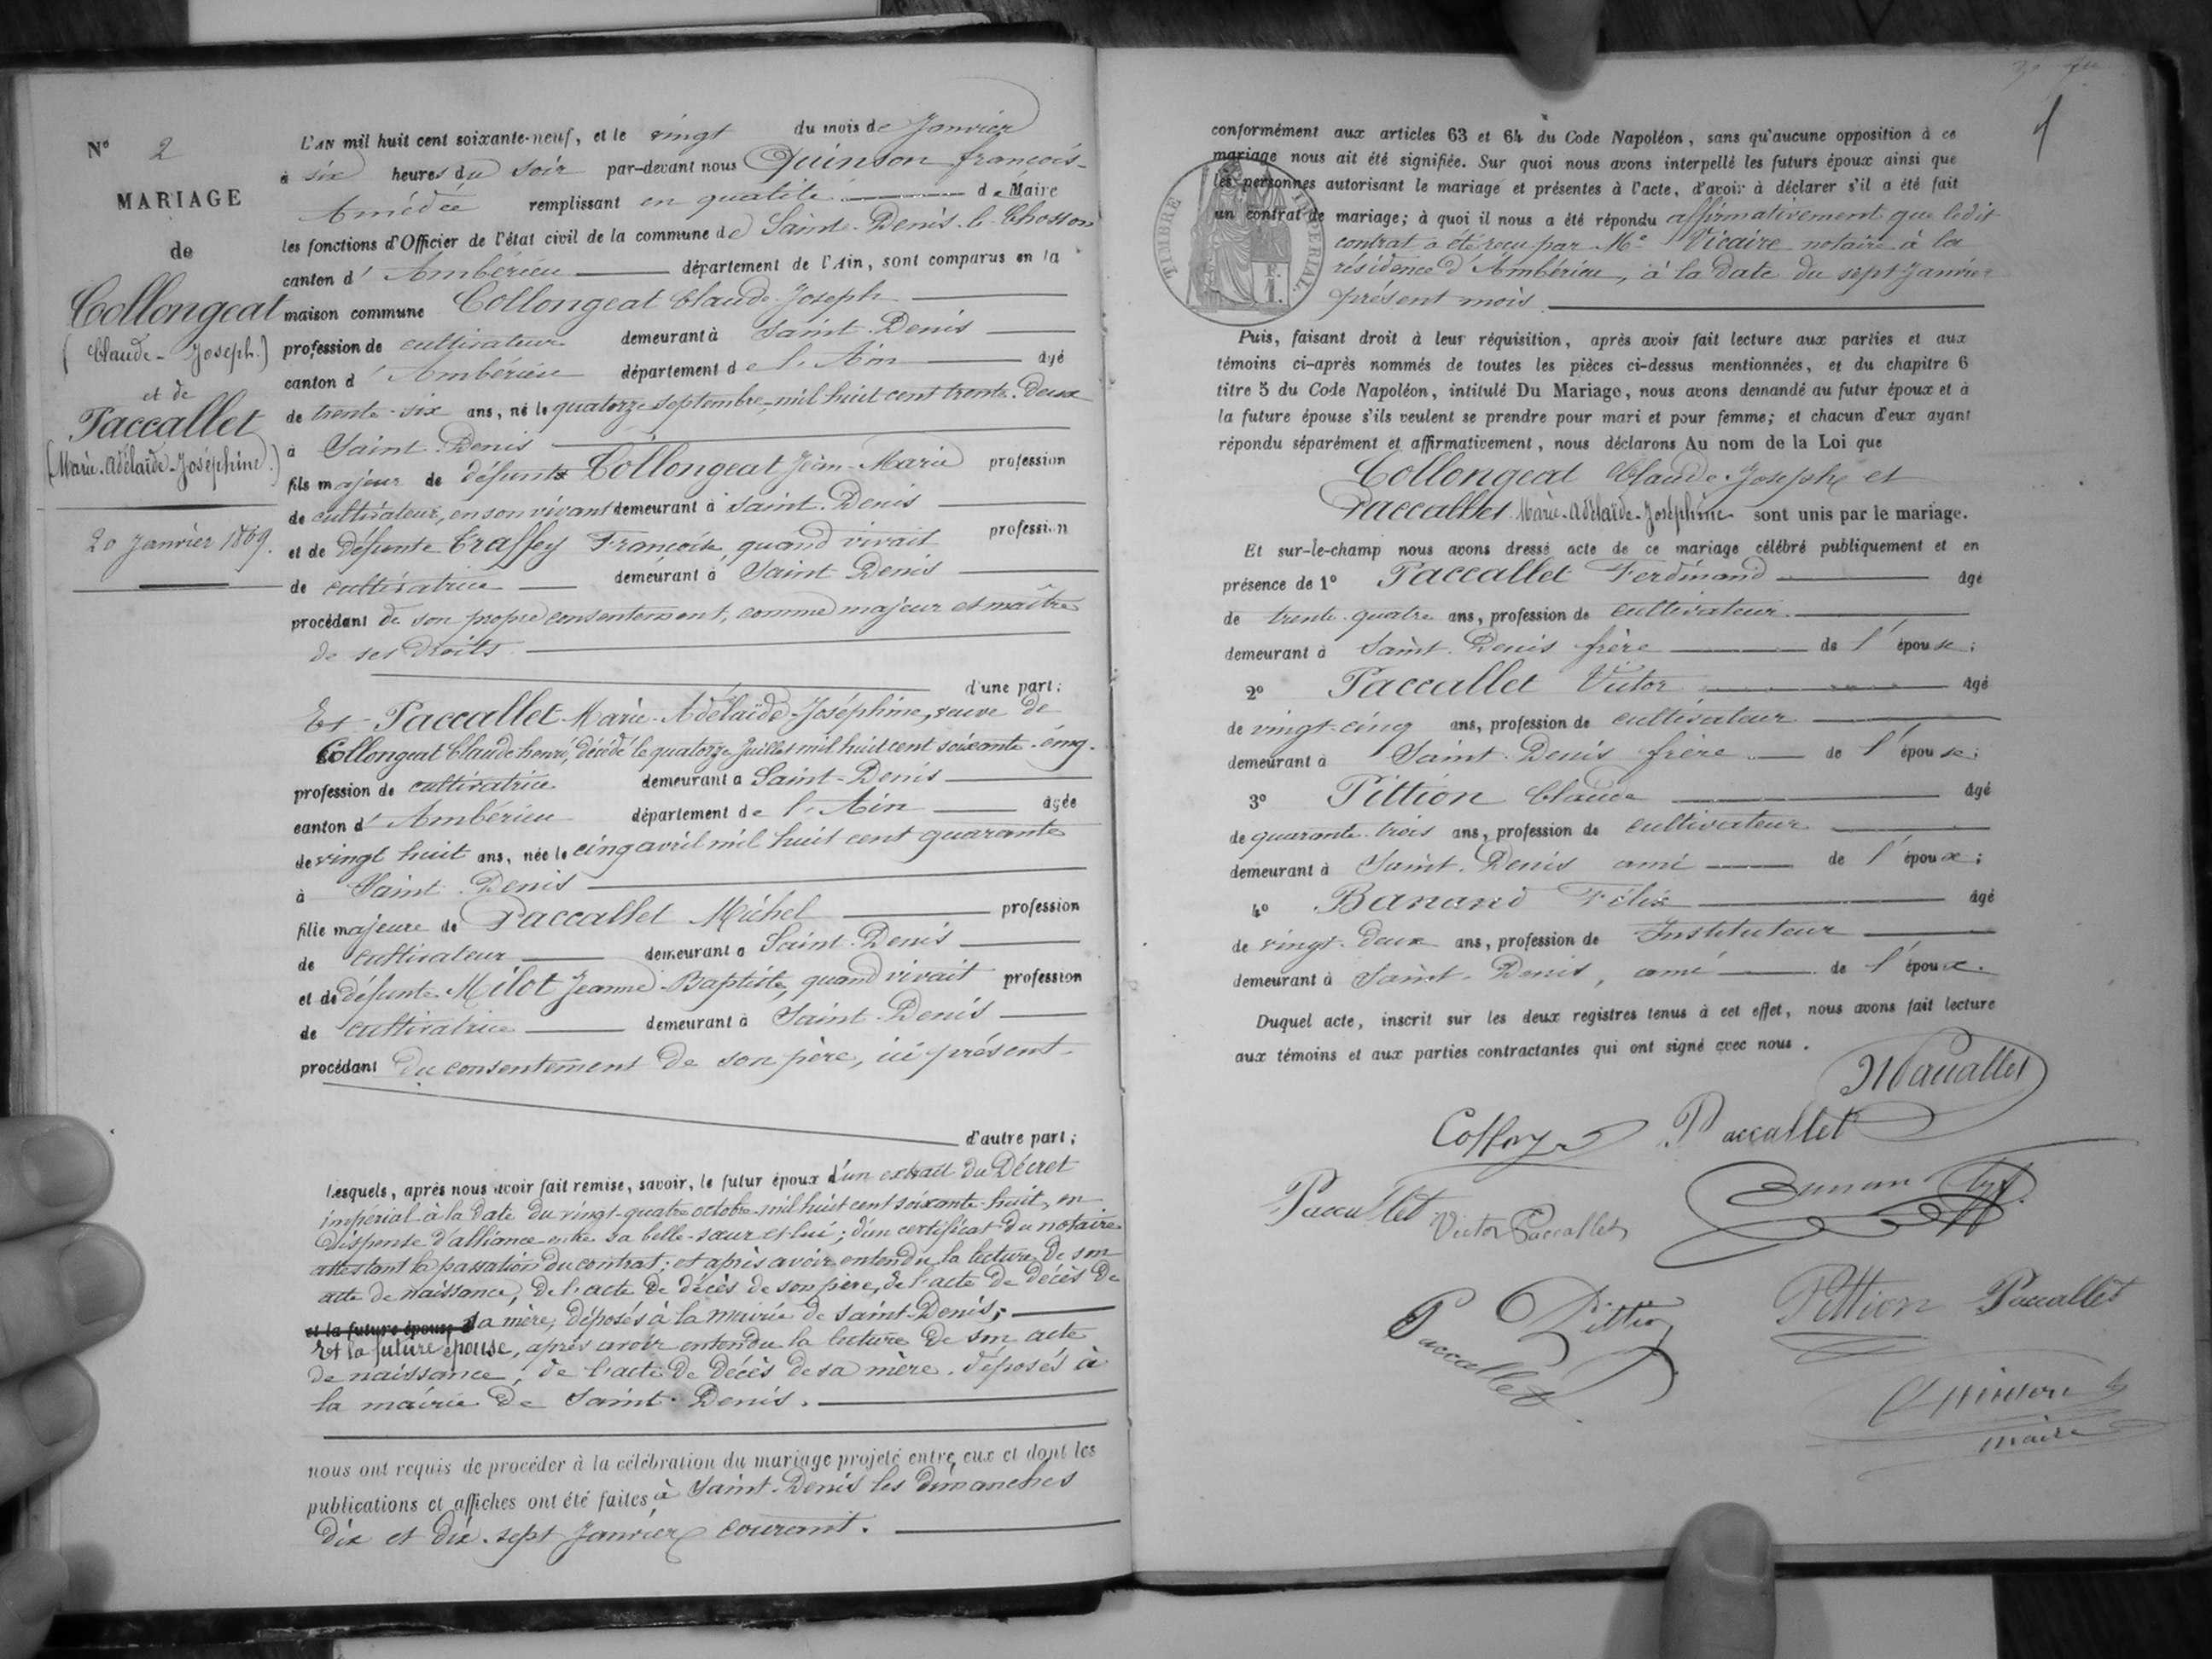 N° 2
MARIAGE
de
Collongeat
(Claude-Joseph.)
et de
Paccallet
(Marie-Adélaïde-Joséphine.)
20 Janvier 1869.
L'AN mil huit cent soixante-neuf, et le vingt du mois de Janvier
à six heures du soir par-devant nous Quinson françois-
Amédée remplissant en qualité de Maire
les fonctions d'Officier de l'état civil de la commune de Saint-Denis-le-Chosson
canton d'Ambérieu département de l'Ain, sont comparus en la
maison commune Collongeat Claude-Joseph
profession de cultivateur demeurant à Saint-Denis
canton d'Ambérieu département de l'Ain âgé
de trente-six ans, né le quatorze septembre mil huit cent trente-deux
à Saint-Denis
fils majeur de défunts Collongeat Jean-Marie profession
de cultivateur, en son vivant demeurant à Saint-Denis
et de défunte Traffey Françoise, quand vivait profession
de cultivatrice demeurant à Saint Denis
procédant de son propre consentement, comme majeur et maître
de ses droits
d'une part;
Et Paccallet Marie-Adélaïde-Joséphine, veuve de
Collongeat Claude henri, décédé le quatorze juillet mil huit cent soixante-cinq.
profession de cultivatrice demeurant à Saint-Denis
canton d'Ambérieu département de l'Ain âgée
de vingt huit ans, née le cinq avril mil huit cent quarante
à Saint Denis
fille majeure de Paccallet Michel profession
de cultivateur demeurant à Saint-Denis
et de défunte Milot Jeanne-Baptiste, quand vivait profession
de cultivatrice demeurant à Saint-Denis
procédant du consentement de son père, ici présent.
d'autre part;
Lesquels, après nous avoir fait remise, savoir, le futur époux d'un extrait du Décret
impérial à la date du vingt-quatre octobre mil huit cent soixante-huit, en
dispense d'alliance entre sa belle-sœur et lui; d'un certificat du notaire
attestant la passation du contrat; et après avoir entendu la lecture de son
acte de naissance, de l'acte de décès de son père, de l'acte de décès de
et la future épouse sa mère, déposés à la mairie de Saint-Denis;
Et la future épouse, après avoir entendu la lecture de son acte
de naissance, de l'acte de décès de sa mère. déposés à
la mairie de Saint-Denis.
nous ont requis de procéder à la célébration du mariage projeté entre eux et dont les
publications et affiches ont été faites à Saint-Denis les dimanches
dix et dix-sept Janvier courant.
conformément aux articles 63 et 64 du Code Napoléon, sans qu'aucune opposition à ce
mariage nous ait été signifiée. Sur quoi nous avons interpellé les futurs époux ainsi que
les personnes autorisant le mariage et présentes à l'acte, d'avoir à déclarer s'il a été fait
un contrat de mariage; à quoi il nous a été répondu affirmativement que ledit
contrat a été reçu par Me Vicaire notaire à la
résidence d'Ambérieu, à la date du sept Janvier
présent mois.
TIMBRE IMPERIAL
Puis, faisant droit à leur réquisition, après avoir fait lecture aux parties et aux
témoins ci-après nommés de toutes les pièces ci-dessus mentionnées, et du chapitre 6
titre 5 du Code Napoléon, intitulé Du Mariage, nous avons demandé au futur époux et à
la future épouse s'ils veulent se prendre pour mari et pour femme; et chacun d'eux ayant
répondu séparément et affirmativement, nous déclarons Au nom de la Loi que
Collongeat Claude-Joseph et
Paccallet Marie-Adélaïde-Joséphine sont unis par le mariage.
Et sur-le-champ nous avons dressé acte de ce mariage célébré publiquement et en
présence de 1° Paccallet Ferdinand âgé
de trente-quatre ans, profession de cultivateur
demeurant à Saint-Denis frère de l'épouse;
2° Paccallet Victor âgé
de vingt-cinq ans, profession de cultivateur
demeurant à Saint-Denis frère de l'épouse;
3° Pittion Claude âgé
de quarante-trois ans, profession de cultivateur
demeurant à Saint-Denis ami de l'époux;
4° Banand Félix âgé
de vingt-deux ans, profession de Instituteur
demeurant à Saint-Denis, ami de l'époux.
Duquel acte, inscrit sur les deux registres tenus à cet effet, nous avons fait lecture
aux témoins et aux parties contractantes qui ont signé avec nous.
Paccallet
Paccallet
Paccallet
Victor Paccallet
Paccallet
Pittion
Pittion Paccallet
Quinson
maire